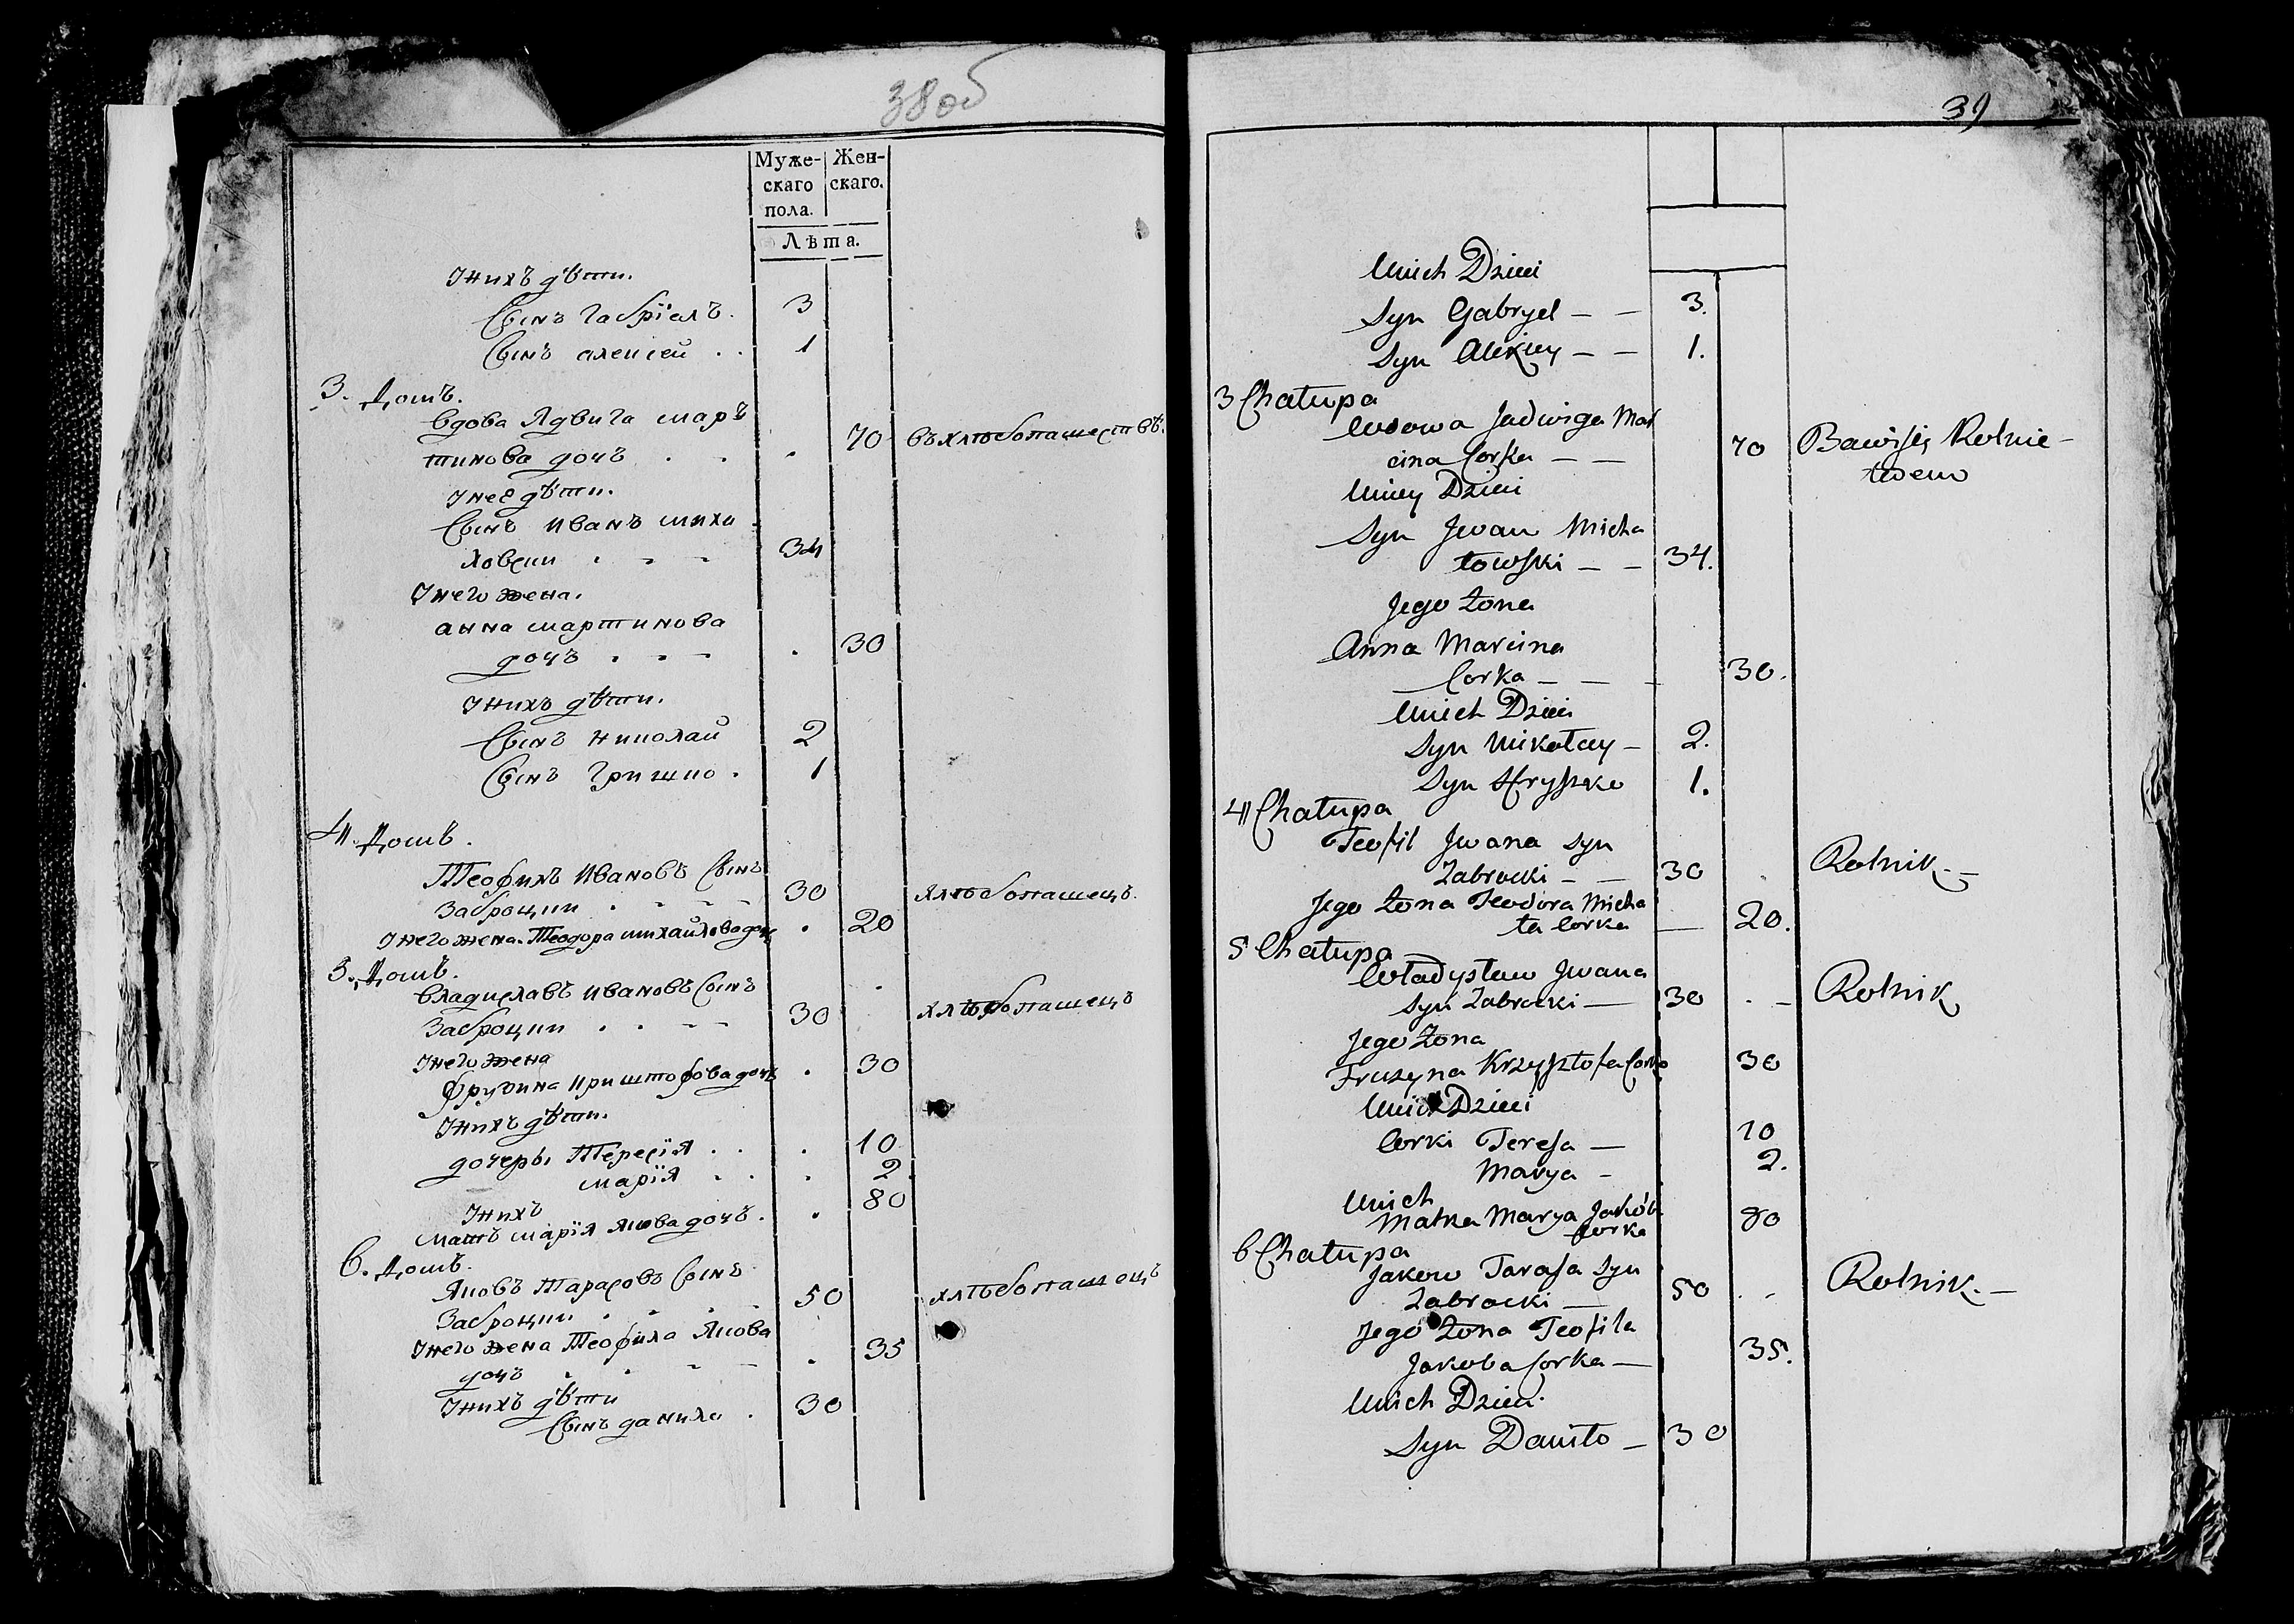 38об
Муже- Жен-
скаго скаго.
пола.
Лѣта.
Унихъ дѣти.
Сынъ Габрїелъ. 3
Сынъ алексей . . 1
3. Домъ.
вдова Ядвига мар
тинова дочъ . . . 70 въ хлѣбопашествѣ.
Унеѣ дѣти.
Сынъ иванъ миха
ловски . - - 34
Унего жена.
анна мартинова
дочъ . - - . 30
Унихъ дѣти.
Сынъ николай 2
Сынъ Гришко . 1
4. Домъ.
Теофилъ ивановъ Сынъ
Заброцки . - - - 30 хлѣбопашецъ.
Унего жена. Теодора михайлова доч . 20
5. Домъ.
владиславъ ивановъ Сынъ
Заброцки . . - - 30 хлѣбопашецъ
Унего жена
Фрузина криштофова дочъ . 30
Унихъ дѣти.
дочеры Тересїя . . . 10
марїя . . . 2
Унихъ
матъ марїя якова дочъ . . 80
6. Домъ.
Яковъ Тарасовъ Сынъ
Заброцки . . - - 50 хлѣбопашецъ
Унего жена Теофила Якова
дочъ . . - - . 35
Унихъ дѣти
Сынъ данило . 30
39
Unich Dzieci
Syn Gabryel – – 3.
Syn Alexiey – – 1.
3 Chałupa
Wdowa Jadwiga Mar
cina Corka – – 70 Bawi się Rolnic-
twem
Uniey Dzieci
Syn Jwan Micha
łowski – – 34.
Jego Żona
Anna Marcina
Corka – – – 30.
Unich Dzieci
Syn Mikołay – 2.
Syn Hryszko 1.
4 Chałupa
Teofil Jwana Syn
Zabrocki – – 30 . Rolnik. –
Jego Żona Teodora Micha
ła Corka — 20.
5 Chałupa
Władysław Jwana
Syn Zabrocki — 30 . – Rolnik
Jego Żona
Fruzyna Krzysztofa Corka 30
Unich Dzieci
Corki Teresa — 10
Marya – 2.
Unich
Matka Marya Jakób
Corka 80
6 Chałupa
Jakow Tarasa Syn
Zabrocki — 50 . - Rolnik. –
Jego Żona Teofila
Jakoba Corka — 35.
Unich Dzieci.
Syn Daniło – 30